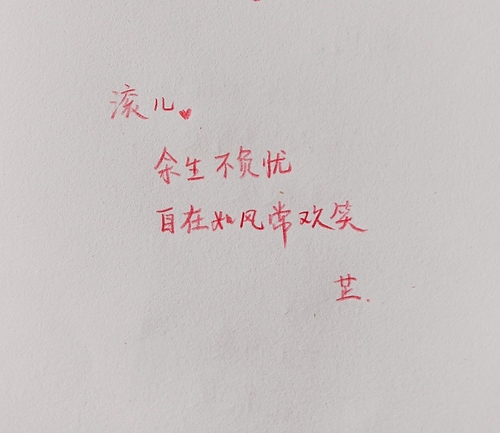 滚儿♥
余生不负忧
自在如风常欢笑
芷.